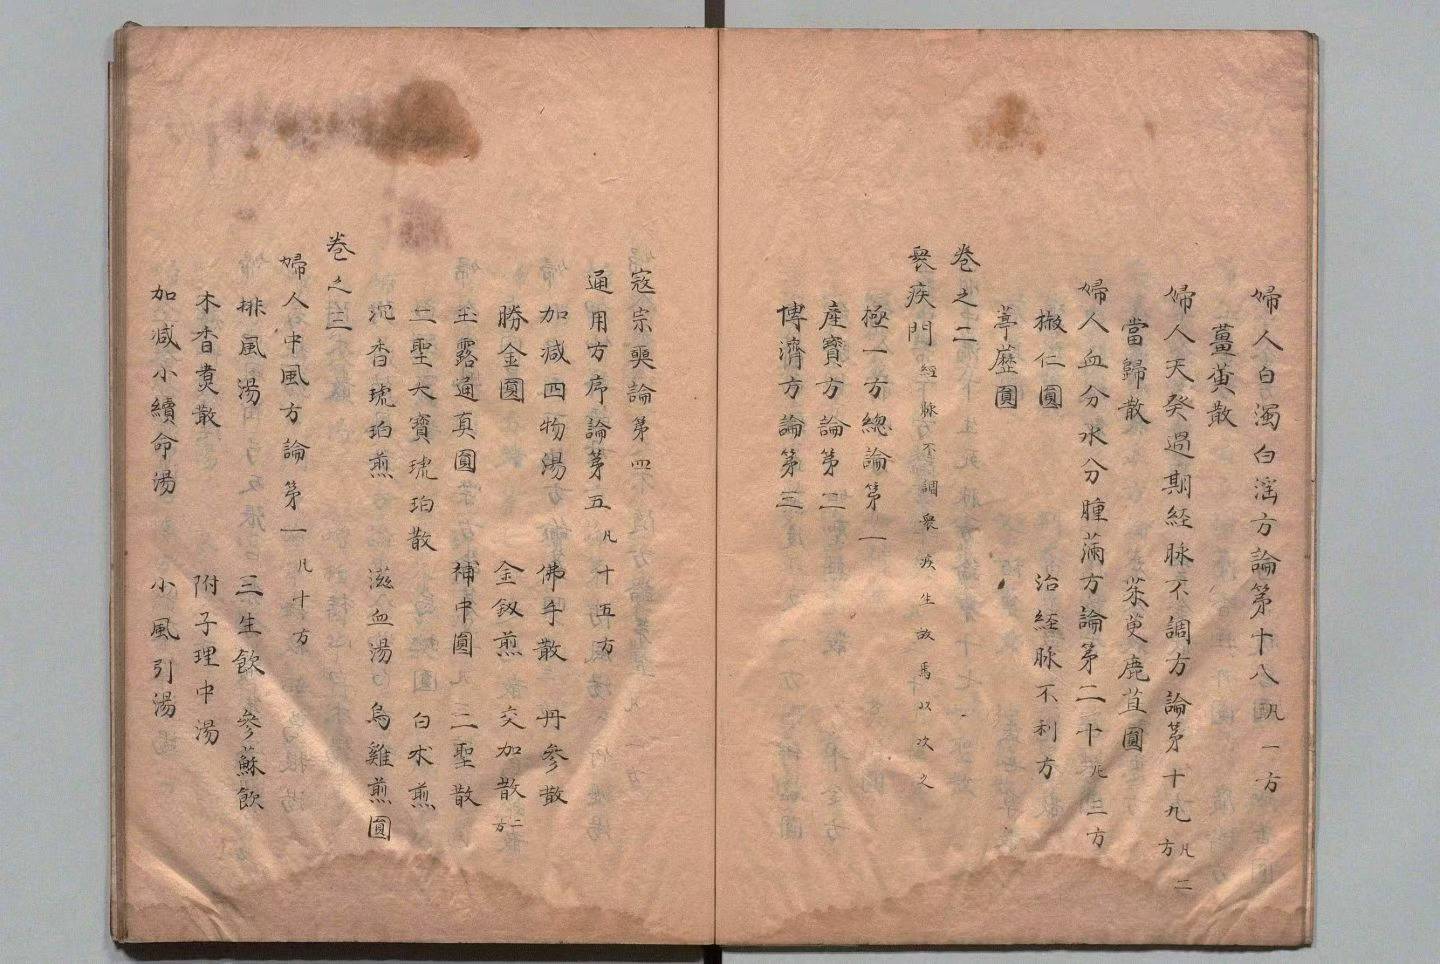 婦人白濁白淫方論第十八凡一方
薑黄散
婦人天癸過期経脉不調方論第十九凡二方
當歸散　茱萸鹿茸圓
婦人血分水分腫滿方論第二十凡三方
椒仁圓　治経脉不利方
葶藶圓
卷之二
衆疾門 経脉不調衆疾生故馬以次之
極一方總論第一
産寶方論第二
博濟方論第三
寇宗奭論第四
通用方序論第五凡十五方
加减四物湯　佛手散　丹參散
勝金圓　金釵煎　交加散二方
玉露通真圓　補中圓　二聖散
三聖大寳琥珀散　白术煎
沈香琥珀煎　滋血湯　烏雞煎圓
卷之三
婦人中風方論第一凡十方
排風湯　三生飲　參蘇飲
木香煑散　附子理中湯
加减小續命湯　小風引湯